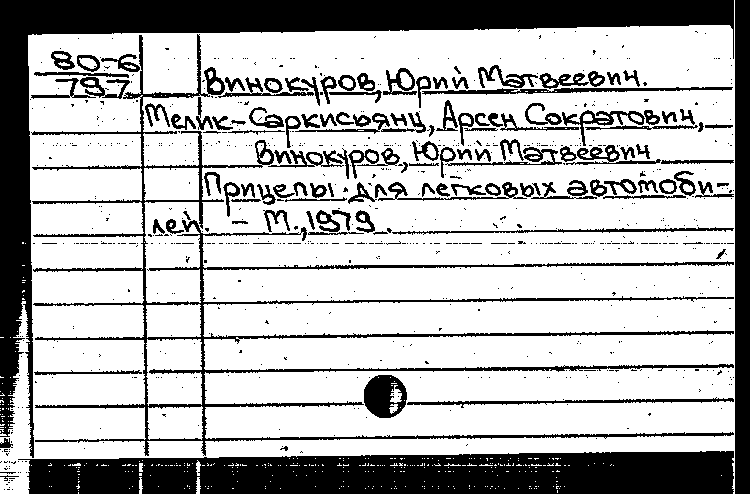 80-6
797
Винокуров, Юрий Матвеевич.
Мелик-Саркисьянц, Арсен Сократович,
Винокуров, Юрий Матвеевич.
Прицепы для легковых автомоби-
лей. - М., 1979.